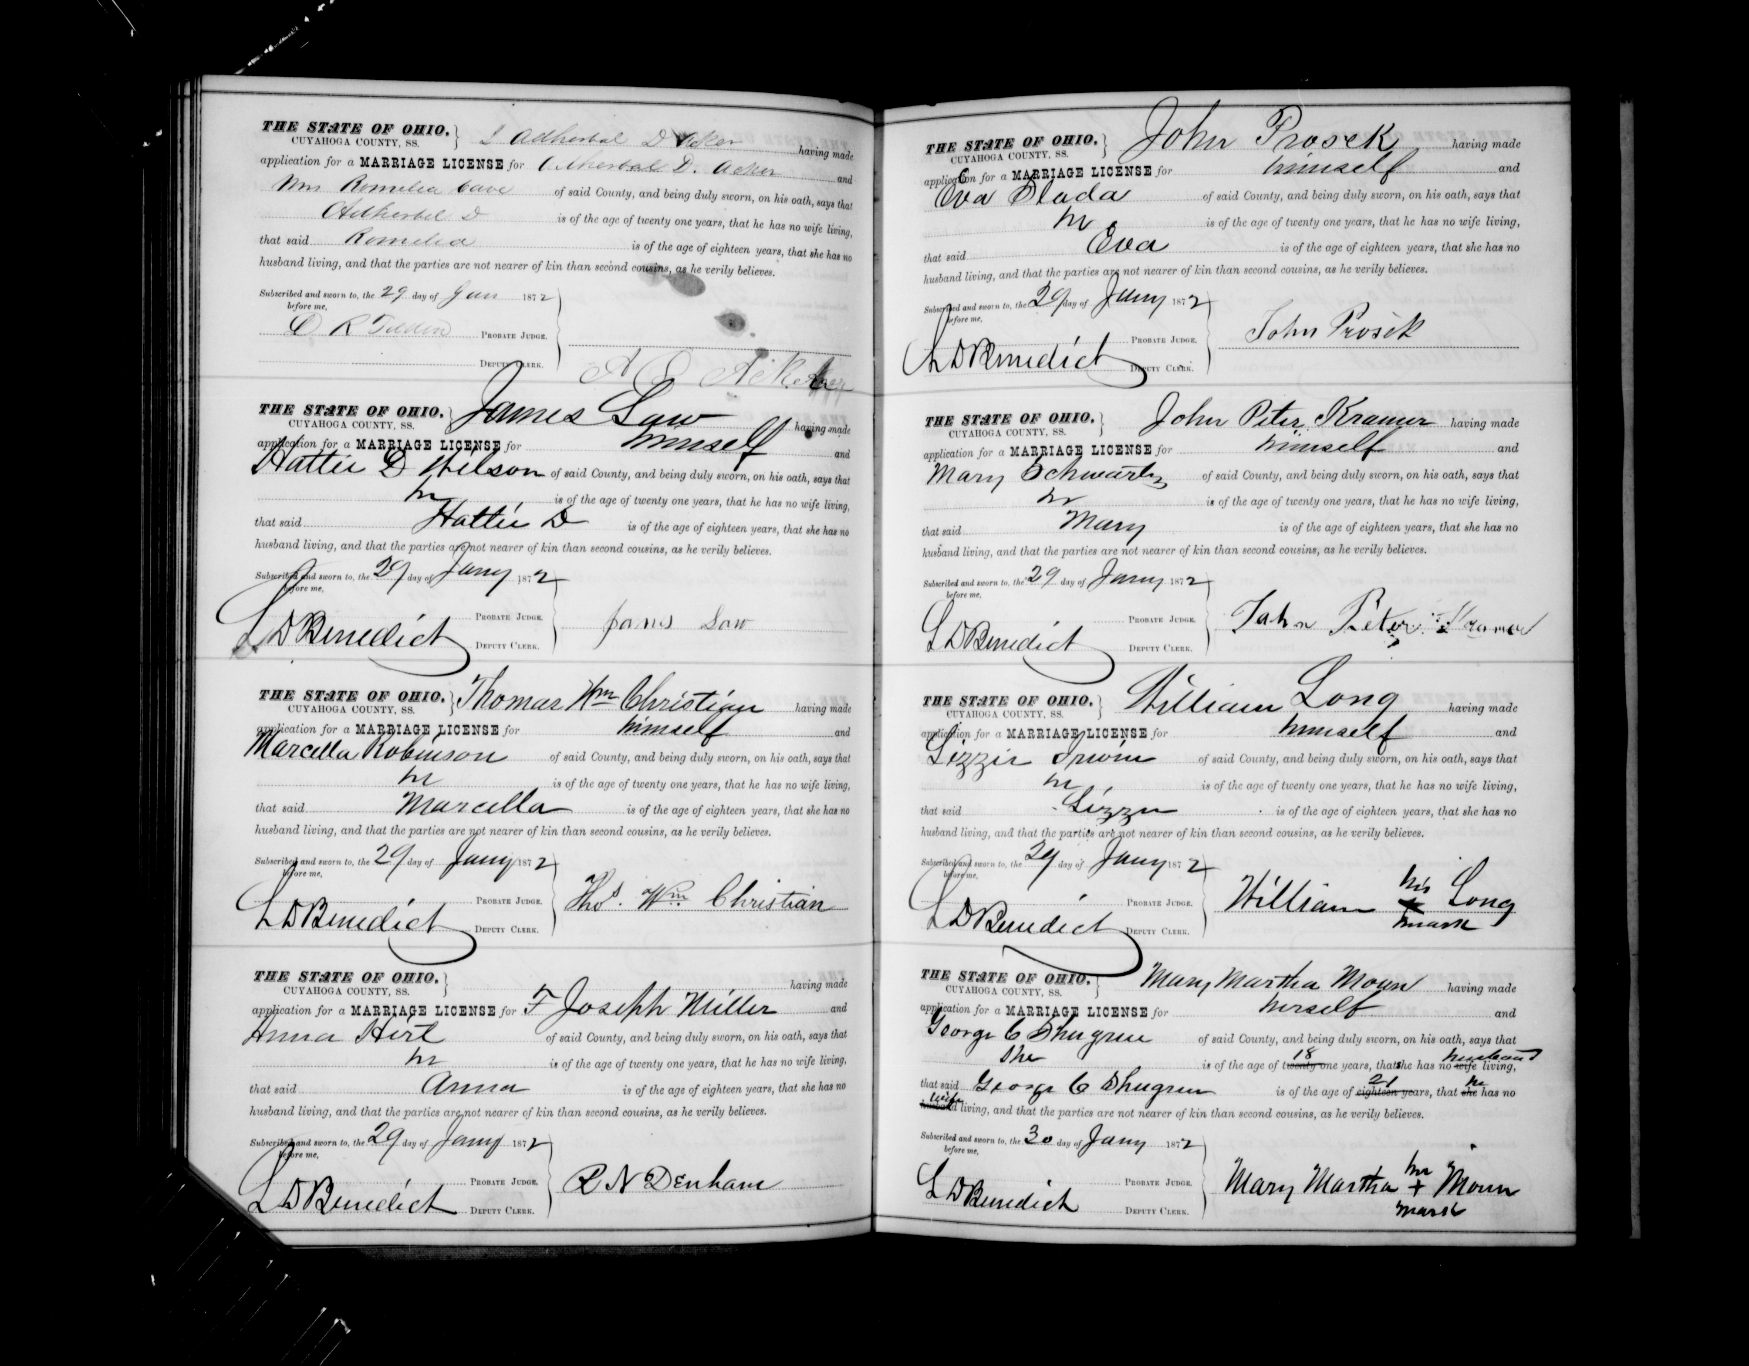 THE STATE OF OHIO,
CUYAHOGA COUNTY, SS. } I Adherbal D Acker having made
application for a MARRIAGE LICENSE for Adherbal D. Acker and
Mrs Romelia Cave of said County, and being duly sworn, on his oath, says that
Adherbal D is of the age of twenty one years, that he has no wife living,
that said Romelia is of the age of eighteen years, that she has no
husband living, and that the parties are not nearer of kin than second cousins, as he verily believes.
Subscribed and sworn to, the 29 day of Jan 1872
before me,
D R Tilden PROBATE JUDGE.
DEPUTY CLERK.
A D Acker
THE STATE OF OHIO,
CUYAHOGA COUNTY, SS. } James Law having made
application for a MARRIAGE LICENSE for himself and
Hattie D Wilson of said County, and being duly sworn, on his oath, says that
he is of the age of twenty one years, that he has no wife living,
that said Hattie D is of the age of eighteen years, that she has no
husband living, and that the parties are not nearer of kin than second cousins, as he verily believes.
Subscribed and sworn to, the 29 day of Jany 1872
before me,
PROBATE JUDGE.
James Law
L D Benedict DEPUTY CLERK.
THE STATE OF OHIO,
CUYAHOGA COUNTY, SS. } Thomas Wm Christian having made
application for a MARRIAGE LICENSE for himself and
Marcella Robinson of said County, and being duly sworn, on his oath, says that
he is of the age of twenty one years, that he has no wife living,
that said Marcella is of the age of eighteen years, that she has no
husband living, and that the parties are not nearer of kin than second cousins, as he verily believes.
Subscribed and sworn to, the 29 day of Jany 1872
before me,
PROBATE JUDGE.
Thos. Wm. Christian
L D Benedict DEPUTY CLERK.
THE STATE OF OHIO,
CUYAHOGA COUNTY, SS. } having made
application for a MARRIAGE LICENSE for F Joseph Miller and
Anna Hirt of said County, and being duly sworn, on his oath, says that
he is of the age of twenty one years, that he has no wife living,
that said Anna is of the age of eighteen years, that she has no
husband living, and that the parties are not nearer of kin than second cousins, as he verily believes.
Subscribed and sworn to, the 29 day of Jany 1872
before me,
PROBATE JUDGE.
R N Denham
L D Benedict DEPUTY CLERK.
THE STATE OF OHIO,
CUYAHOGA COUNTY, SS. } John Prosek having made
application for a MARRIAGE LICENSE for himself and
Eva Slada of said County, and being duly sworn, on his oath, says that
he is of the age of twenty one years, that he has no wife living,
that said Eva is of the age of eighteen years, that she has no
husband living, and that the parties are not nearer of kin than second cousins, as he verily believes.
Subscribed and sworn to, the 29 day of Jany 1872
before me,
PROBATE JUDGE.
John Prosek
L D Benedict DEPUTY CLERK.
THE STATE OF OHIO,
CUYAHOGA COUNTY, SS. } John Peter Kramer having made
application for a MARRIAGE LICENSE for himself and
Mary Schwartz of said County, and being duly sworn, on his oath, says that
he is of the age of twenty one years, that he has no wife living,
that said Mary is of the age of eighteen years, that she has no
husband living, and that the parties are not nearer of kin than second cousins, as he verily believes.
Subscribed and sworn to, the 29 day of Jany 1872
before me,
PROBATE JUDGE.
John Peter Kramer
L D Benedict DEPUTY CLERK.
THE STATE OF OHIO,
CUYAHOGA COUNTY, SS. } William Long having made
application for a MARRIAGE LICENSE for himself and
Lizzie Irwin of said County, and being duly sworn, on his oath, says that
he is of the age of twenty one years, that he has no wife living,
that said Lizzie is of the age of eighteen years, that she has no
husband living, and that the parties are not nearer of kin than second cousins, as he verily believes.
Subscribed and sworn to, the 29 day of Jany 1872
before me,
PROBATE JUDGE.
William his x mark Long
L D Benedict DEPUTY CLERK.
THE STATE OF OHIO,
CUYAHOGA COUNTY, SS. } Mary Martha Moun having made
application for a MARRIAGE LICENSE for herself and
George C Shugrue of said County, and being duly sworn, on his oath, says that
she is of the age of twenty one 18 years, that she has no wife husband living,
that said George C Shugrue is of the age of eighteen 21 years, that she he has no
husband wife living, and that the parties are not nearer of kin than second cousins, as he verily believes.
Subscribed and sworn to, the 30 day of Jany 1872
before me,
PROBATE JUDGE.
Mary Martha her + mark Moun
L D Benedict DEPUTY CLERK.